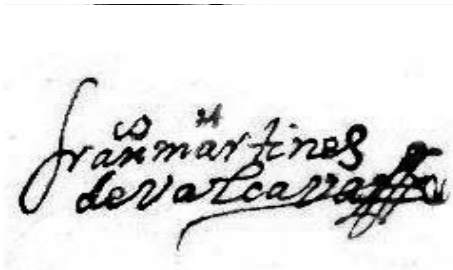 fran^co martines
de valcarza